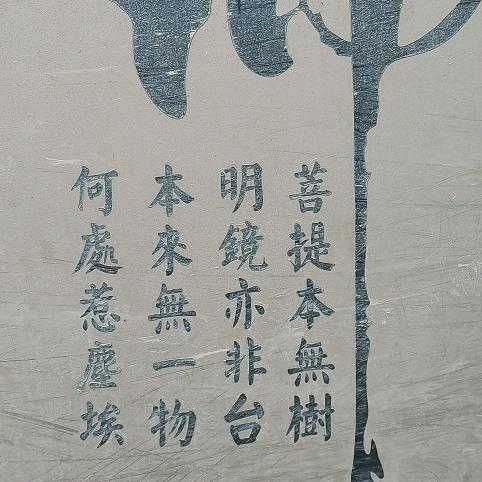 菩提本無樹
明鏡亦非台
本來無一物
何處惹塵埃